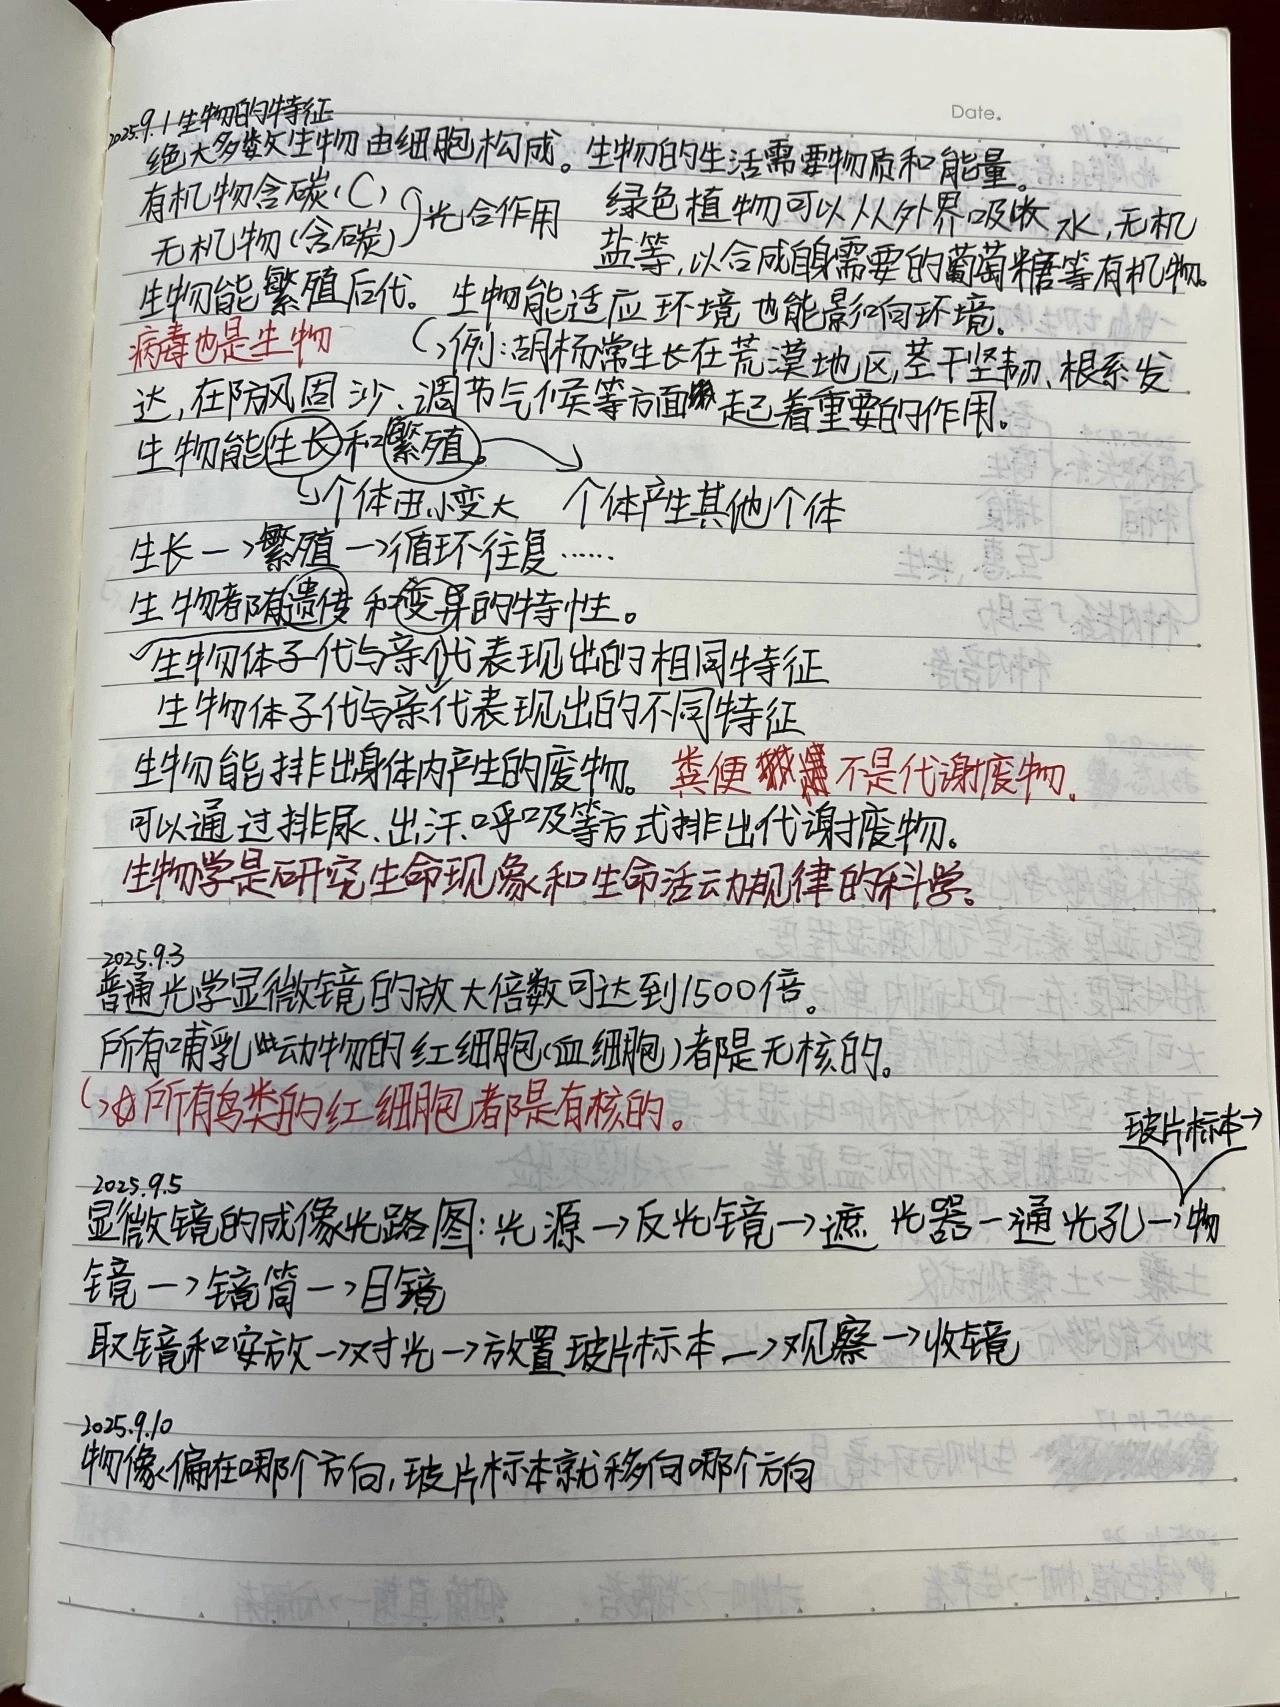 Date.
2025.9.1 生物的特征
绝大多数生物由细胞构成。生物的生活需要物质和能量。
有机物含碳(C) 光合作用 绿色植物可以从外界吸收水,无机
无机物(含碳) 盐等,以合成自身需要的葡萄糖等有机物。
生物能繁殖后代。生物能适应环境也能影响环境。
病毒也是生物 例:胡杨常生长在荒漠地区,茎干坚韧、根系发
达,在防风固沙、调节气候等方面起着重要的作用。
生物能生长和繁殖。
个体由小变大 个体产生其他个体
生长→繁殖→循环往复……
生物都有遗传和变异的特性。
生物体子代与亲代表现出的相同特征
生物体子代与亲代表现出的不同特征
生物能排出身体内产生的废物。粪便不是代谢废物。
可以通过排尿、出汗、呼吸等方式排出代谢废物。
生物学是研究生命现象和生命活动规律的科学。
2025.9.3
普通光学显微镜的放大倍数可达到1500倍。
所有哺乳动物的红细胞(血细胞)都是无核的。
☆所有鸟类的红细胞都是有核的。
玻片标本→
2025.9.5
显微镜的成像光路图:光源→反光镜→遮光器—通光孔→物
镜→镜筒→目镜
取镜和安放→对光→放置玻片标本→观察→收镜
2025.9.10
物像偏在哪个方向,玻片标本就移向哪个方向